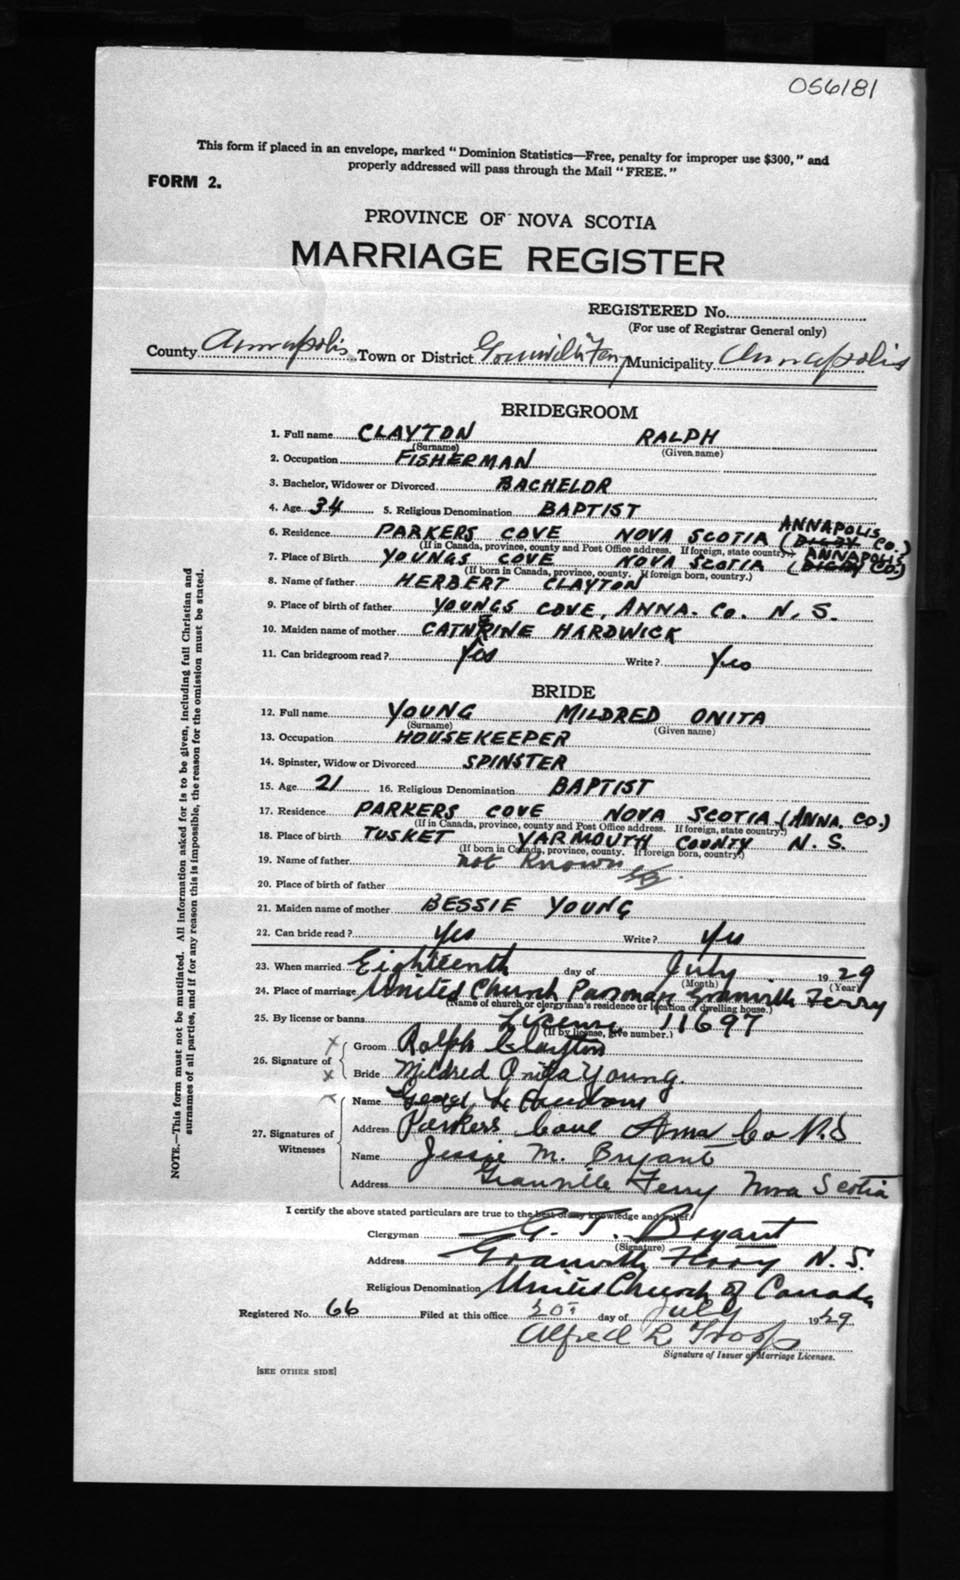 056181
This form if placed in an envelope, marked "Dominion Statistics—Free, penalty for improper use $300," and
properly addressed will pass through the Mail "FREE."
FORM 2.
PROVINCE OF NOVA SCOTIA
MARRIAGE REGISTER
REGISTERED No.
(For use of Registrar General only)
County Annapolis Town or District Granville Ferry Municipality Annapolis
BRIDEGROOM
1. Full name CLAYTON RALPH
(Surname) (Given name)
2. Occupation FISHERMAN
3. Bachelor, Widower or Divorced BACHELOR
4. Age 34 5. Religious Denomination BAPTIST
ANNAPOLIS
6. Residence PARKERS COVE NOVA SCOTIA (DIGBY CO.)
(If in Canada, province, county and Post Office address. If foreign, state country.) ANNAPOLIS
7. Place of Birth YOUNGS COVE NOVA SCOTIA (DIGBY CO)
(If born in Canada, province, county. If foreign born, country.)
8. Name of father HERBERT CLAYTON
9. Place of birth of father YOUNGS COVE, ANNA. CO. N.S.
10. Maiden name of mother CATHERINE HARDWICK
11. Can bridegroom read? Yes Write? Yes
BRIDE
12. Full name YOUNG MILDRED ONITA
(Surname) (Given name)
13. Occupation HOUSEKEEPER
14. Spinster, Widow or Divorced SPINSTER
15. Age 21 16. Religious Denomination BAPTIST
17. Residence PARKERS COVE NOVA SCOTIA (ANNA. CO.)
(If in Canada, province, county and Post Office address. If foreign, state country.)
18. Place of birth TUSKET YARMOUTH COUNTY N.S.
(If born in Canada, province, county. If foreign born, country.)
19. Name of father not known
20. Place of birth of father
21. Maiden name of mother BESSIE YOUNG
22. Can bride read? Yes Write? Yes
23. When married Eighteenth day of July 1929
(Month) (Year)
24. Place of marriage United Church Parsonage Granville Ferry
(Name of church or clergyman's residence or location of dwelling house.)
25. By license or banns License 11697
(If by license, give number.)
26. Signature of
X Groom Ralph Clayton
X Bride Mildred Onita Young.
27. Signatures of Witnesses
X Name
Address Parkers Cove Anna Co N.S
Name Jessie M. Bryant
Address Granville Ferry Nova Scotia
I certify the above stated particulars are true to the best of my knowledge and belief.
Clergyman G. T. Bryant
(Signature)
Address Granville Ferry N.S.
Religious Denomination United Church of Canada
Registered No. 66 Filed at this office 20th day of July 1929
Alfred L Troop
Signature of Issuer of Marriage Licenses.
[SEE OTHER SIDE]
NOTE.—This form must not be mutilated. All information asked for is to be given, including full Christian and
surnames of all parties, and if for any reason this is impossible, the reason for the omission must be stated.